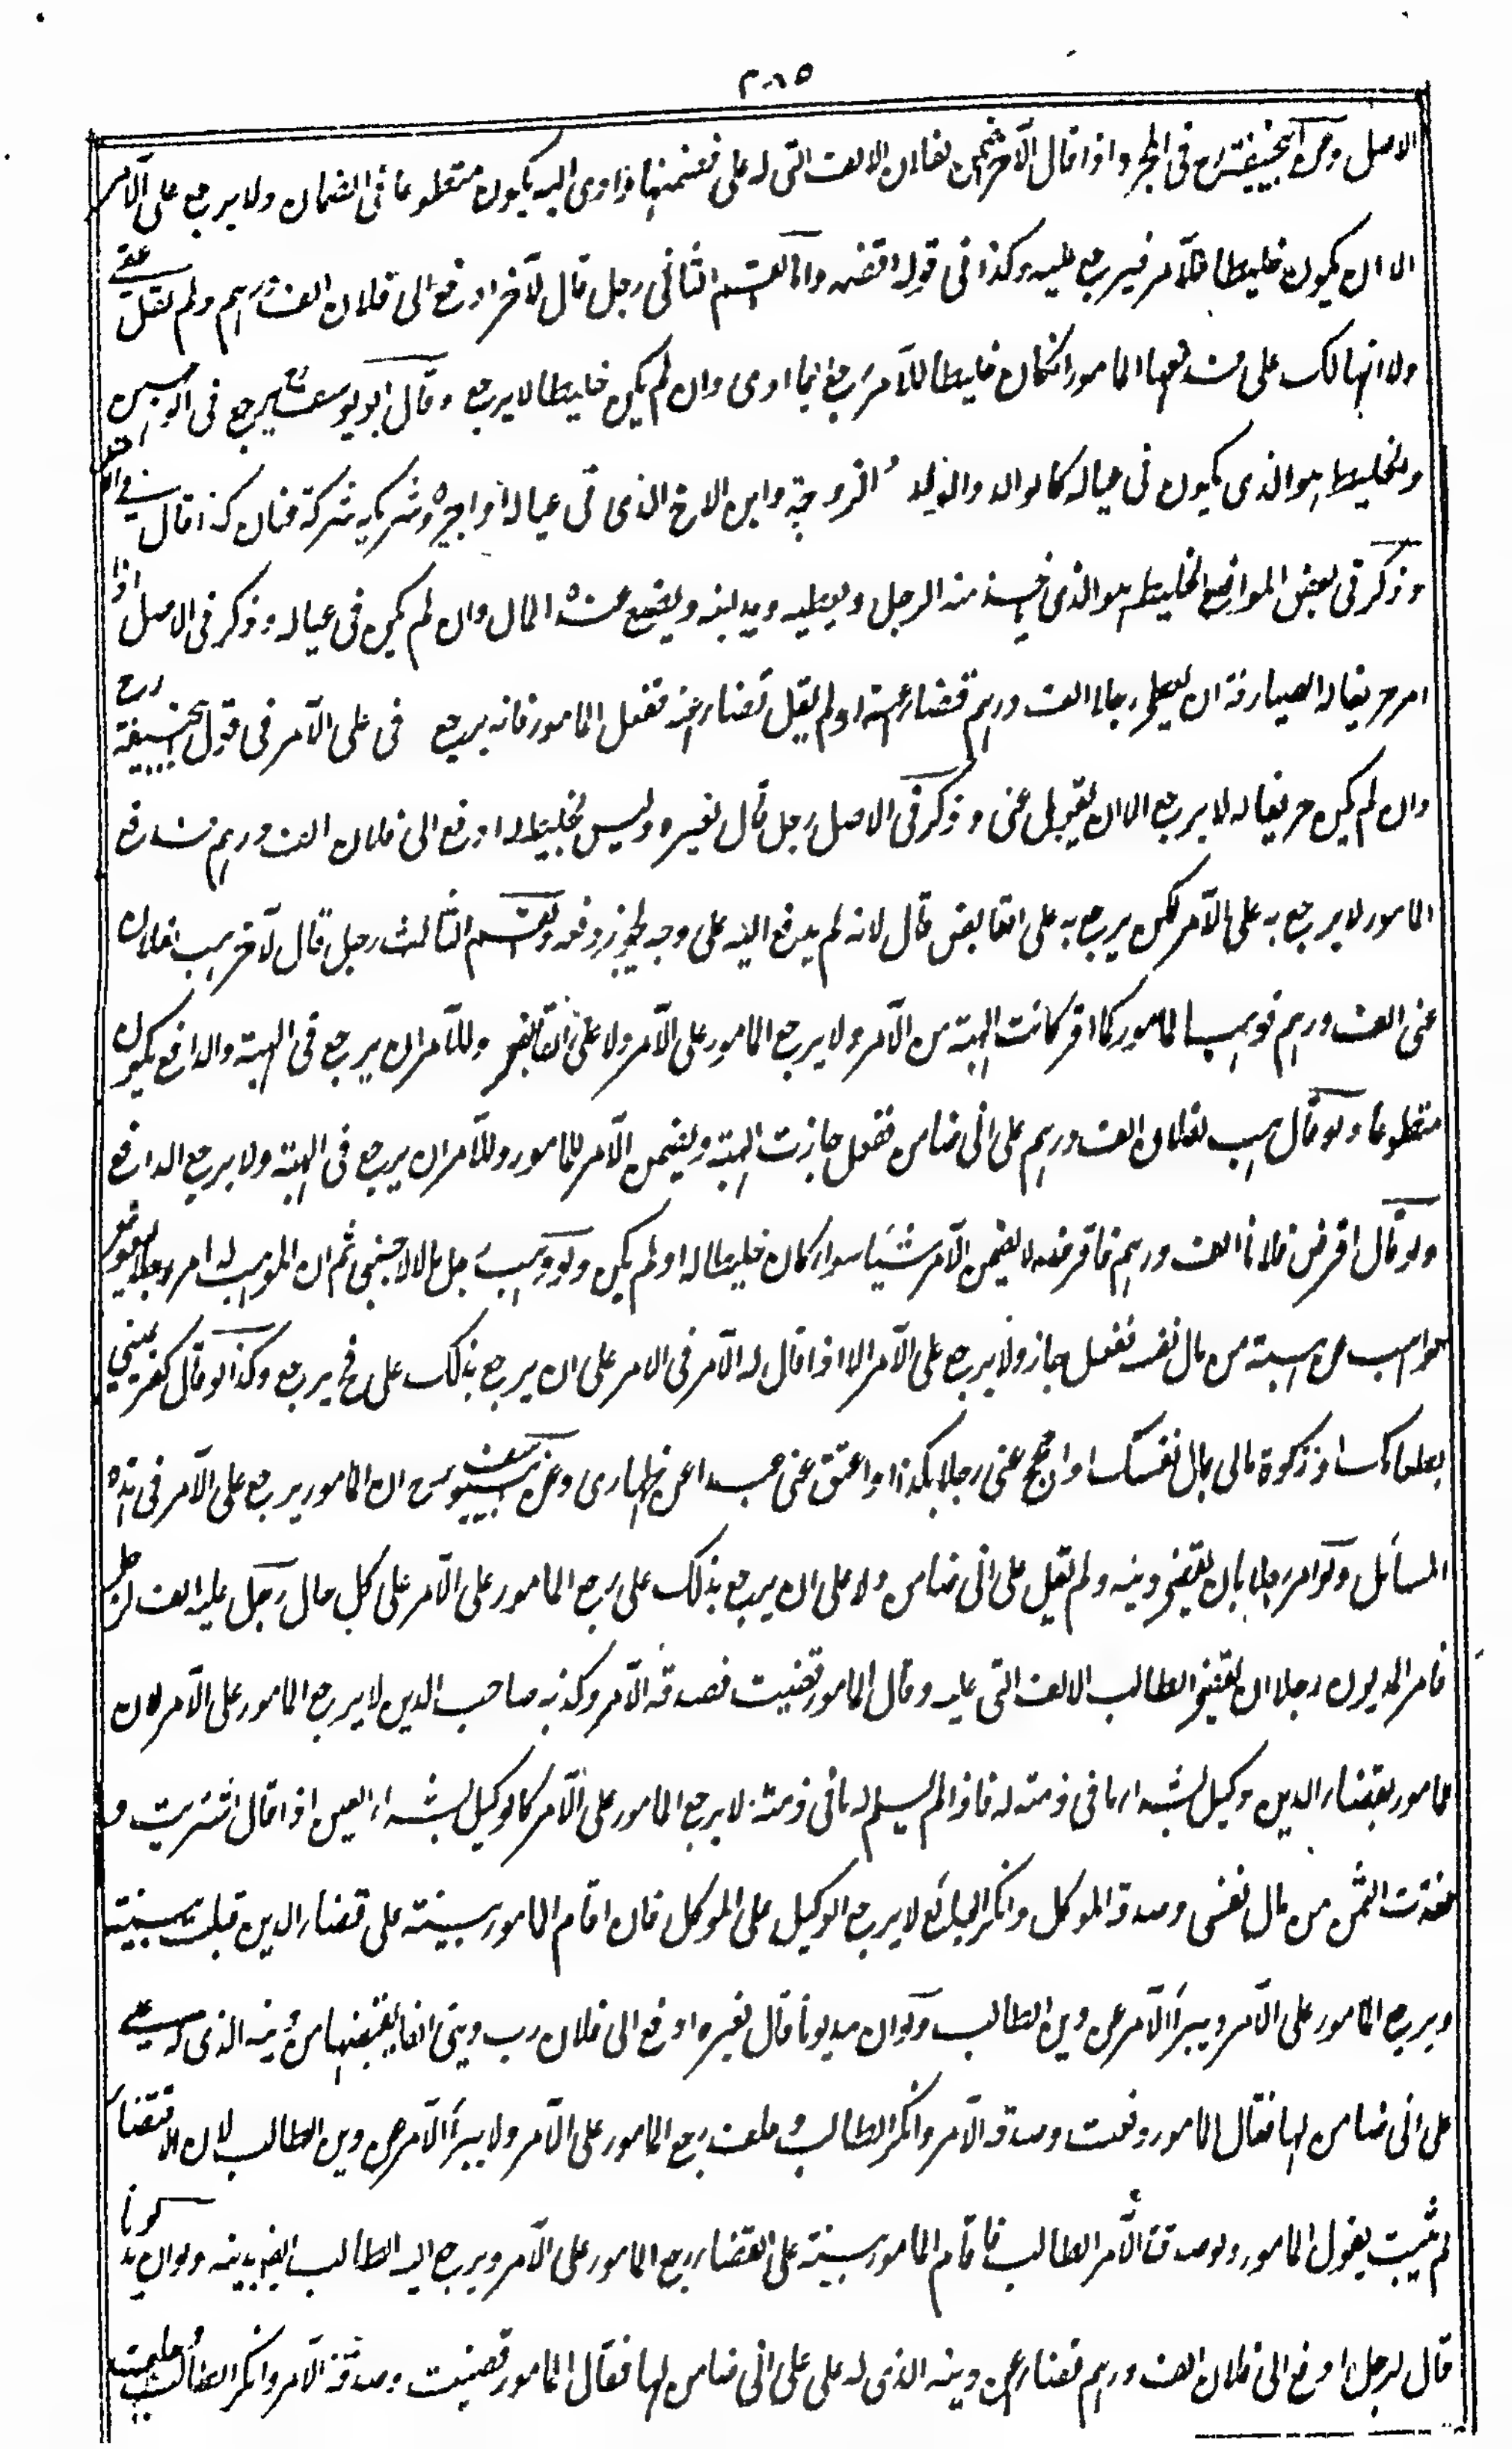 ٣٨٥
الاصل وعن ابيحنيفة رح في المجرد اذا قال لآخر اضمن لفلان الالف التي له علي فضمنها وادى اليه يكون متطوعا في الضمان ولا يرجع على الآمر
الا ان يكون خليطا للآمر فيرجع عليه وكذا في قوله اقضه واما القسم الثاني رجل قال لآخر ادفع الى فلان الف درهم ولم يقل عني
ولا انها لك علي فدفعها المامور ان كان خليطا للآمر رجع بما ادى وان لم يكن خليطا لا يرجع وقال ابو يوسف رح يرجع في الوجهين
والخليط هو الذي يكون في عياله كالوالد والولد والزوجة وابن الاخ الذي في عياله او اجيره وشريكه شركة عنان كذا قال في الاصل
وذكر في بعض المواضع الخليط هو الذي ياخذ منه الرجل ويعطيه ويداينه ويضع عنده المال وان لم يكن في عياله وذكر في الاصل اذا
امر حريفا له الصيارفة ان يعطي رجلا الف درهم قضاء عنه او لم يقل قضاء عنه ففعل المامور فانه يرجع في على الآمر في قول ابيحنيفة رح
وان لم يكن حريفا له لا يرجع الا ان يقول عني وذكر في الاصل رجل قال لغيره وليس بخليط له ادفع الى فلان الف درهم فدفع
المامور لا يرجع به على الآمر لكن يرجع به على القابض قال لانه لم يدفع اليه على وجه يجوز دفعه والقسم الثالث رجل قال لآخر هب لفلان
عني الف درهم فوهب المامور كما امر كانت الهبة من الآمر ولا يرجع المامور على الآمر ولا على القابض وللآمر ان يرجع في الهبة والدافع يكون
متطوعا ولو قال هب لفلان الف درهم على اني ضامن ففعل جازت الهبة ويضمن الآمر للمامور وللآمر ان يرجع في الهبة ولا يرجع الدافع
ولو قال اقرض فلانا الف درهم فاقرضه لا يضمن الآمر شيئا سواء كان خليطا له او لم يكن ولو وهب رجل مالا لاجنبي ثم ان الموهوب له امر رجلا ليعوض
الواهب عن هبته من مال نفسه ففعل جاز ولا يرجع على الآمر الا اذا قال له الآمر في الامر على ان يرجع بذلك علي فح يرجع وكذا لو قال كفر يميني
بطعامك او زكوة مالي بمال نفسك او احج عني رجلا بكذا او اعتق عني عبدا عن ظهاري وعن ابي يوسف رح ان المامور يرجع على الآمر في هذه
المسائل ولو امر رجلا بان يقضي دينه ولم يقل على اني ضامن ولا على ان يرجع بذلك علي رجع المامور على الآمر على كل حال رجل عليه الف لرجل
فامر المديون رجلا ان يقضي الطالب الالف التي عليه وقال المامور قضيت فصدقه الآمر وكذبه صاحب الدين لا يرجع المامور على الآمر لان
المامور بقضاء الدين وكيل بشراء ما في ذمته له فاذا لم يسلم له ما في ذمته لا يرجع المامور على الآمر كالوكيل بشراء العين اذا قال اشتريت و
نقدت الثمن من مال نفسي وصدقه الموكل وانكر البائع لا يرجع الوكيل على الموكل فان اقام المامور بينة على قضاء الدين قبلت بينته
ويرجع المامور على الآمر ويبرأ الآمر عن دين الطالب ولو ان مديونا قال لغيره ادفع الى فلان رب ديني الفا يقبضها من دينه الذي له علي
على اني ضامن لها فقال المامور دفعت وصدقه الآمر وانكر الطالب وحلف رجع المامور على الآمر ولا يبرأ الآمر عن دين الطالب لان الاقتضاء
لم يثبت بقول المامور ولو صدق الآمر الطالب فاقام المامور بينة على القضاء رجع المامور على الآمر ويرجع اليه الطالب ايض بدينه ولو ان مديونا
قال لرجل ادفع الى فلان الف درهم قضاء عن دينه الذي له علي على اني ضامن لها فقال المامور قضيت وصدقه الآمر وانكر الطالب وحلف